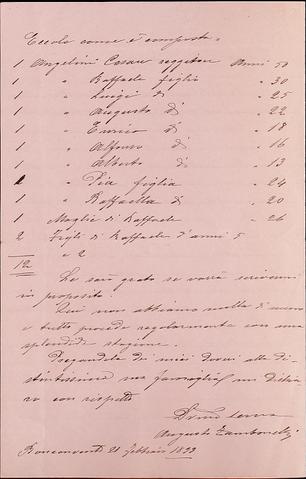 Eccola come è composta.
1 Angelini Cesare reggitore Anni 50
1 " Raffaele figlio " 30
1 " Luigi di " 25
1 " Augusto di " 22
1 " Enrico di " 18
1 " Alfonso di " 16
1 " Alberto di " 13
1 " Pia figlia " 24
1 " Raffaella di " 20
1 Moglie di Raffaele " 26
2 Figli di Raffaele d'anni 5
e 2
12
Le sarò grato se vorrà scrivermi
in proposito.
Qui non abbiamo nulla di nuovo
e tutto procede regolarmente con una
splendida stagione.
Pregandola dei miei doveri alla di
stintissima sua famiglia mi dichia
ro con rispetto
Augusto
21 Febbraio